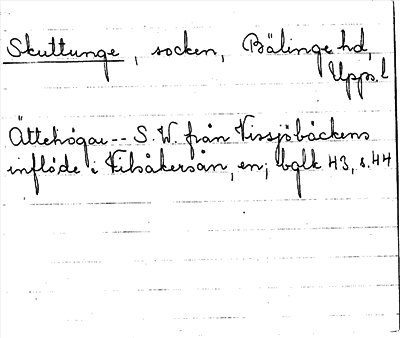 Skuttunge, socken, Bälinge hd,
Upps. l
Ättehögar -- S.W. från Vissjöbäckens
inflöde i Vilsåkersån, en; bglk 43, s. 44